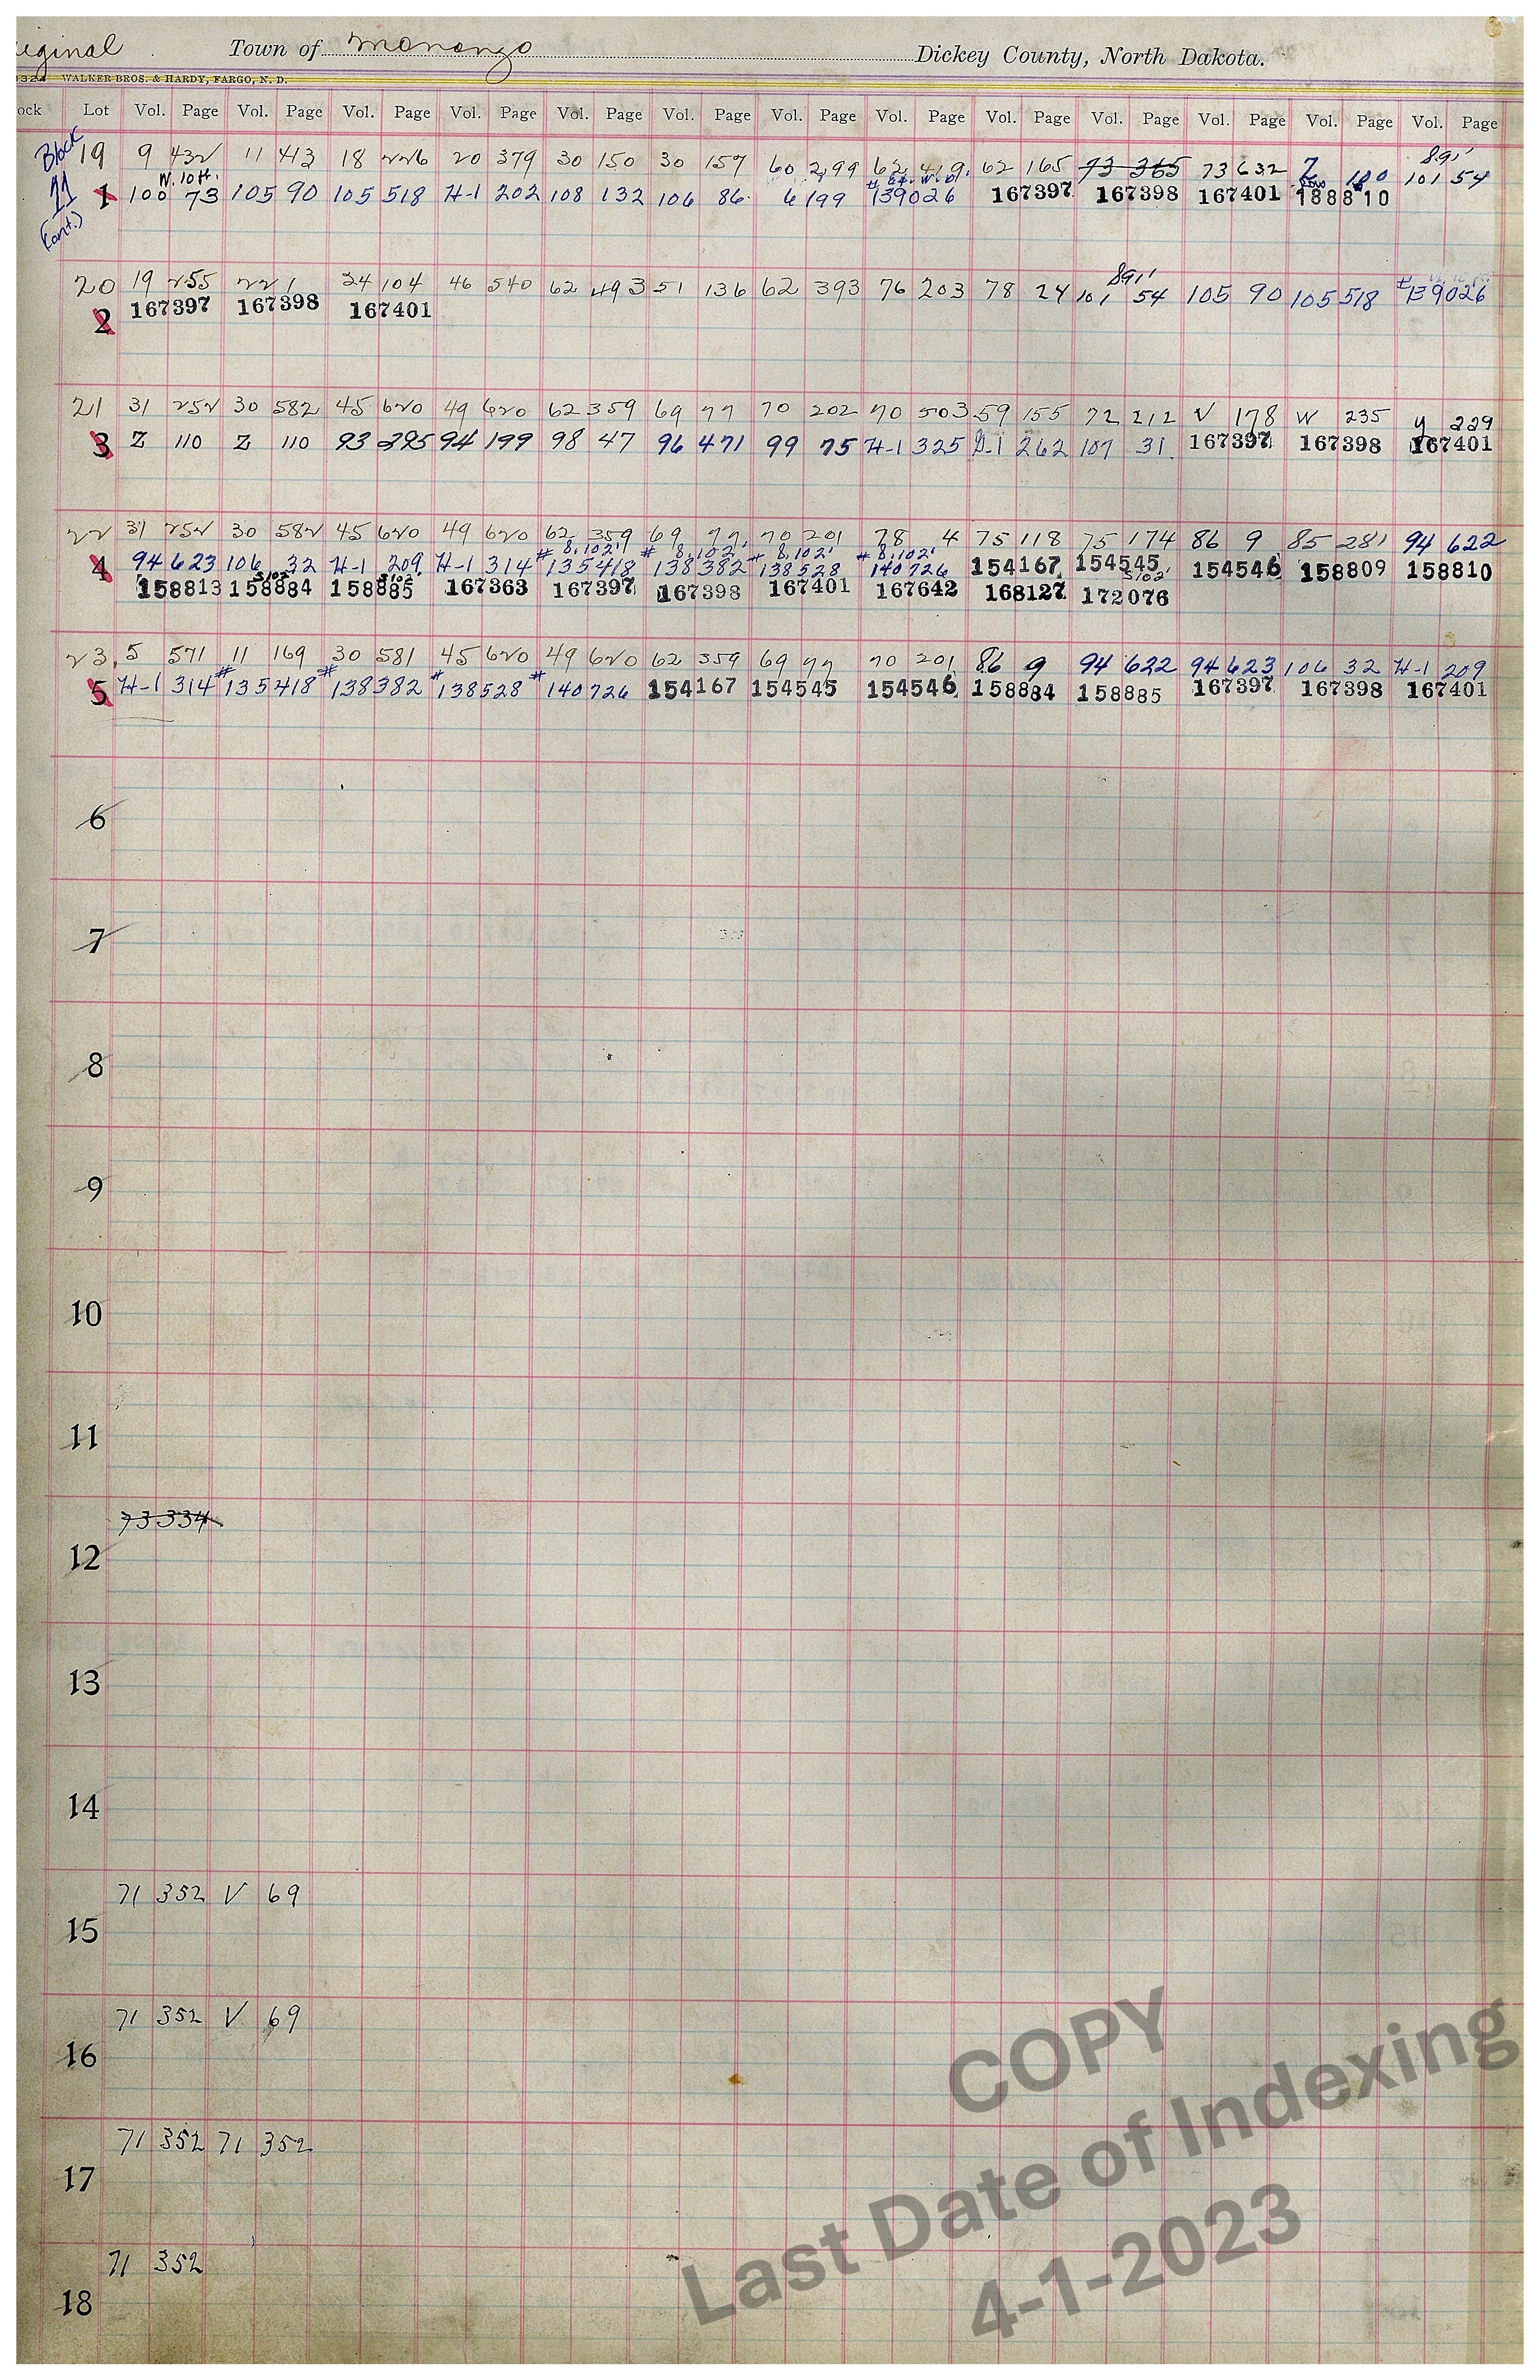 iginal Town of Monango Dickey County, North Dakota.
WALKER BROS. & HARDY, FARGO, N. D.
ock Lot Vol. Page Vol. Page Vol. Page Vol. Page Vol. Page Vol. Page Vol. Page Vol. Page Vol. Page Vol. Page Vol. Page Vol. Page Vol. Page
Block 11 (cont.)
19 9 432 11 413 18 226 20 379 30 150 30 157 60 299 62 419 62 165 73 365 73 632 Z 100 89' 101 54
1 W. 10 ft. 100 73 105 90 105 518 H-1 202 108 132 106 86 6 199 #139026 167397 167398 167401 188810
20 19 255 22 1 34 104 46 540 62 493 51 136 62 393 76 203 78 24 891' 101 54 105 90 105 518 #139026
2 167397 167398 167401
21 31 252 30 582 45 620 49 620 62 359 69 77 70 202 70 503 59 155 72 212 V 178 W 235 y 229
3 Z 110 Z 110 93 295 94 199 98 47 96 471 99 75 H-1 325 D-1 262 107 31 167397 167398 167401
22 31 252 30 582 45 620 49 620 62 359 69 77 70 201 78 4 75 118 75 174 86 9 85 281 94 622
# 8,102' # 8,102' # 8,102' # 8,102'
4 94 623 106 32 H-1 209 H-1 314 135418 138382 138528 140726 154167 154545 154546 158809 158810
S102' S102' S102'
158813 158884 158885 167363 167397 167398 167401 167642 168127 172076
23 5 571 11 169 30 581 45 620 49 620 62 359 69 77 70 201 86 9 94 622 94 623 106 32 H-1 209
5 H-1 314 #135418 #138382 #138528 #140726 154167 154545 154546 158884 158885 167397 167398 167401
6
7
8
9
10
11
73 334
12
13
14
71 352 V 69
15
71 352 V 69
16
71 352 71 352
17
71 352
18
COPY
Last Date of Indexing
4-1-2023